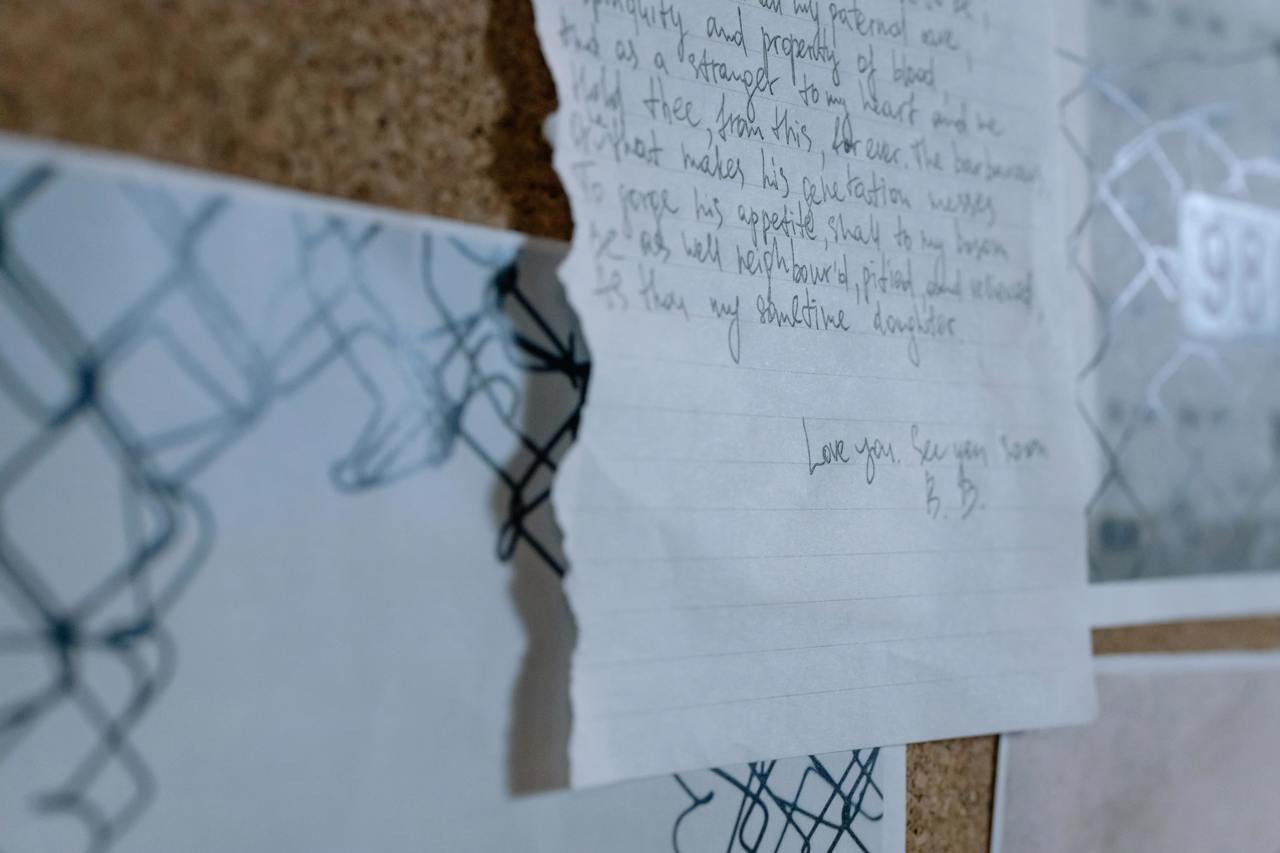 all my paternal care,
and property of blood
as a stranger to my heart and me
Hold thee, from this, for ever. The barbarous
makes his generation messes
To gorge his appetite, shall to my bosom
be as well neighbour'd, pitied, and relieved,
As thou my sometime daughter.
Love you. See you soon
B. B.
98